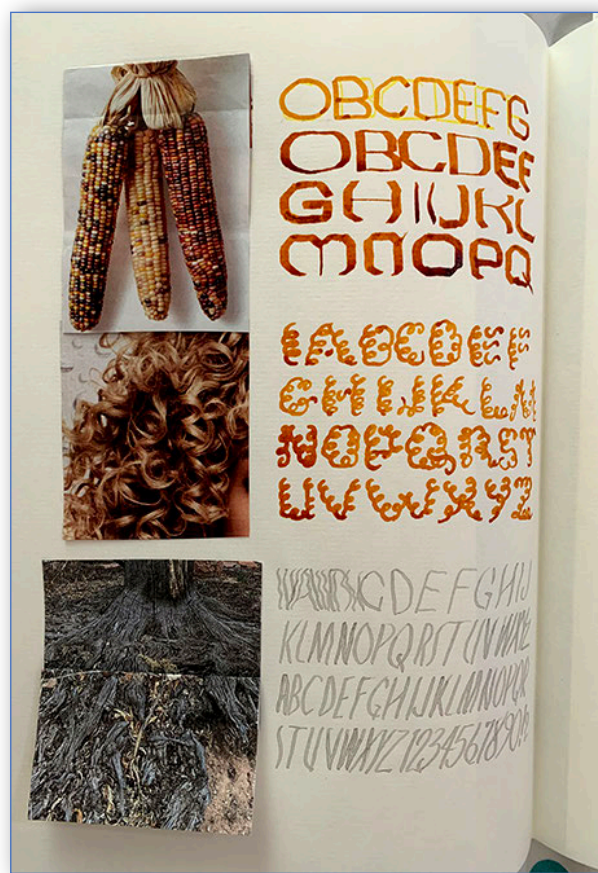 OBCDEFG
OBCDEF
GHIJKL
MNOPQ
IABCDEF
GHIJKLM
NOPQRST
UVWXYZ
CDEFGHIJ
KLMNOPQRSTUVWXYZ
ABCDEFGHIJKLMNOPQR
STUVWXYZ1234567890!?